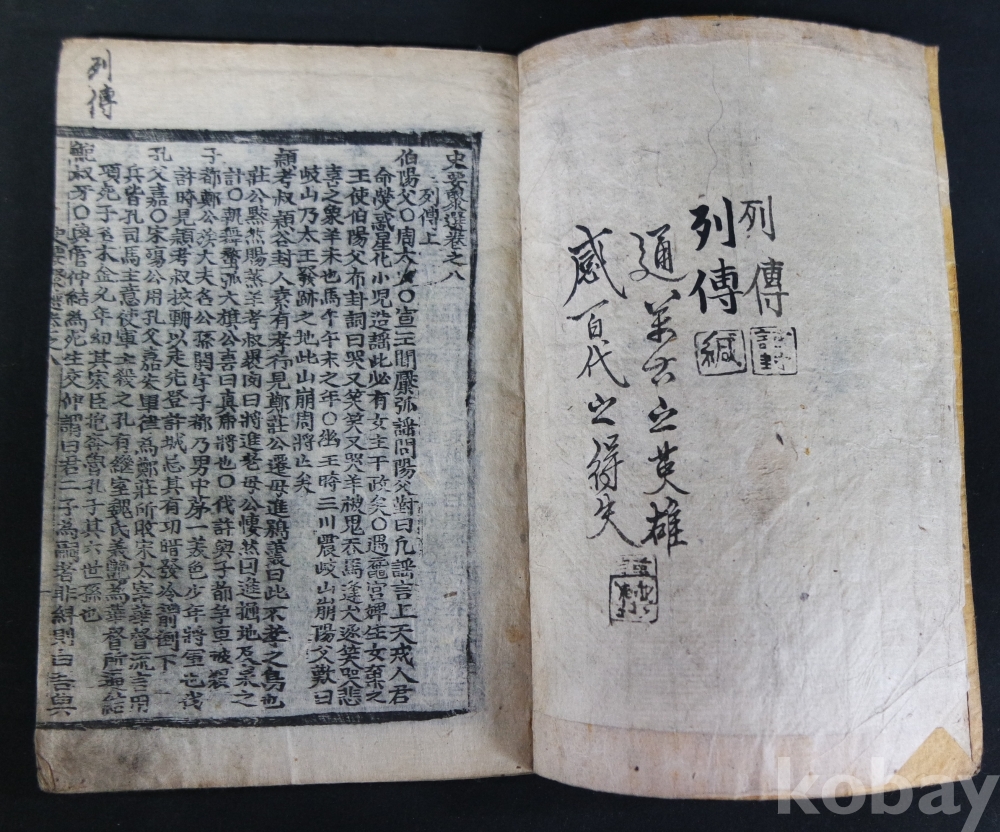 列傳
謹封
列傳
緘
通萬古之英雄
感百代之得失
列傳
史要聚選卷之八
列傳上
伯陽父〇周太史〇宣王聞檿弧謡問陽父對曰凡謡言上天戒人君
命熒惑星化小児造謡此必有女主干政矣〇遇宮婢生女棄之
王使伯陽父布封詞曰哭又笑笑又哭羊被鬼吞馬逢犬逐笑哭悲
喜之象羊未也馬午午未之年〇幽王時三川震岐山崩陽父歎曰
岐山乃太王發跡之地此山崩周將亡矣
頴考叔頴谷封人素有孝行見鄭莊公遷母進鴞曰此不孝之鳥也
莊公黙然賜蒸羊考叔褁肉曰將進老母公悽然曰進掘地及泉之
計〇朝舞蝥弧大旗公喜曰真虎將也〇伐許與子都爭車被
子都鄭公族大夫名公孫閼字子都乃男中第一美色少年將軍也伐
許時見頴考叔挾輈以走先登許城忌其有功暗發冷箭倒下
孔父嘉〇宋殤公用孔父嘉為鄭莊所敗宋太宰華督流言用
兵皆孔司馬主意使軍士殺之孔有継室魏氏美艶為華督所
子名木金年幼其家臣抱奔魯孔子其六世孫也
鮑叔牙〇與管仲結為死生交仲謂曰若二子為嗣者非糾則白吾與
kobay